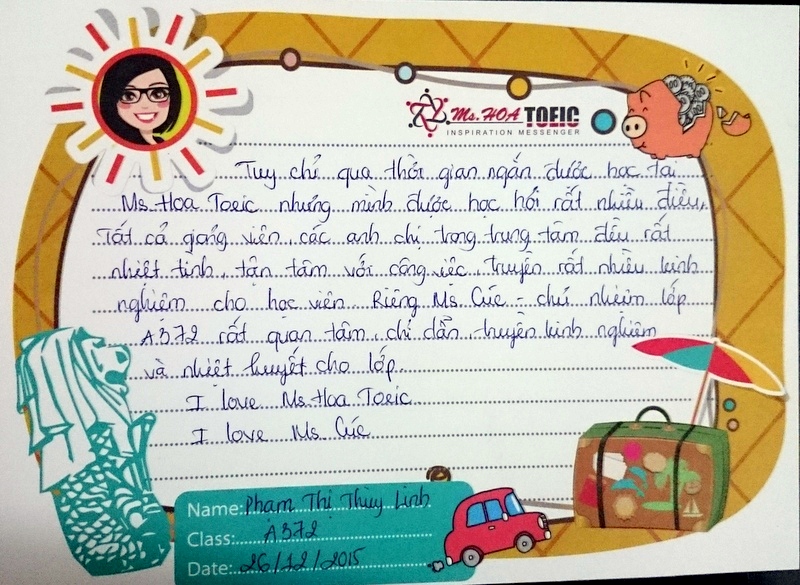 Ms. HOA TOEIC
INSPIRATION MESSENGER
Tuy chỉ qua thời gian ngắn được học tại
Ms Hoa Toeic nhưng mình được học hỏi rất nhiều điều.
Tất cả giảng viên, các anh chị trong trung tâm đều rất
nhiệt tình, tận tâm với công việc, truyền rất nhiều kinh
nghiệm cho học viên. Riêng Ms Cúc - chủ nhiệm lớp
A372 rất quan tâm, chỉ dẫn, truyền kinh nghiệm
và nhiệt huyết cho lớp.
I love Ms Hoa Toeic
I love Ms. Cúc
Name: Phạm Thị Thùy Linh
Class: A372
Date: 26/12/2015